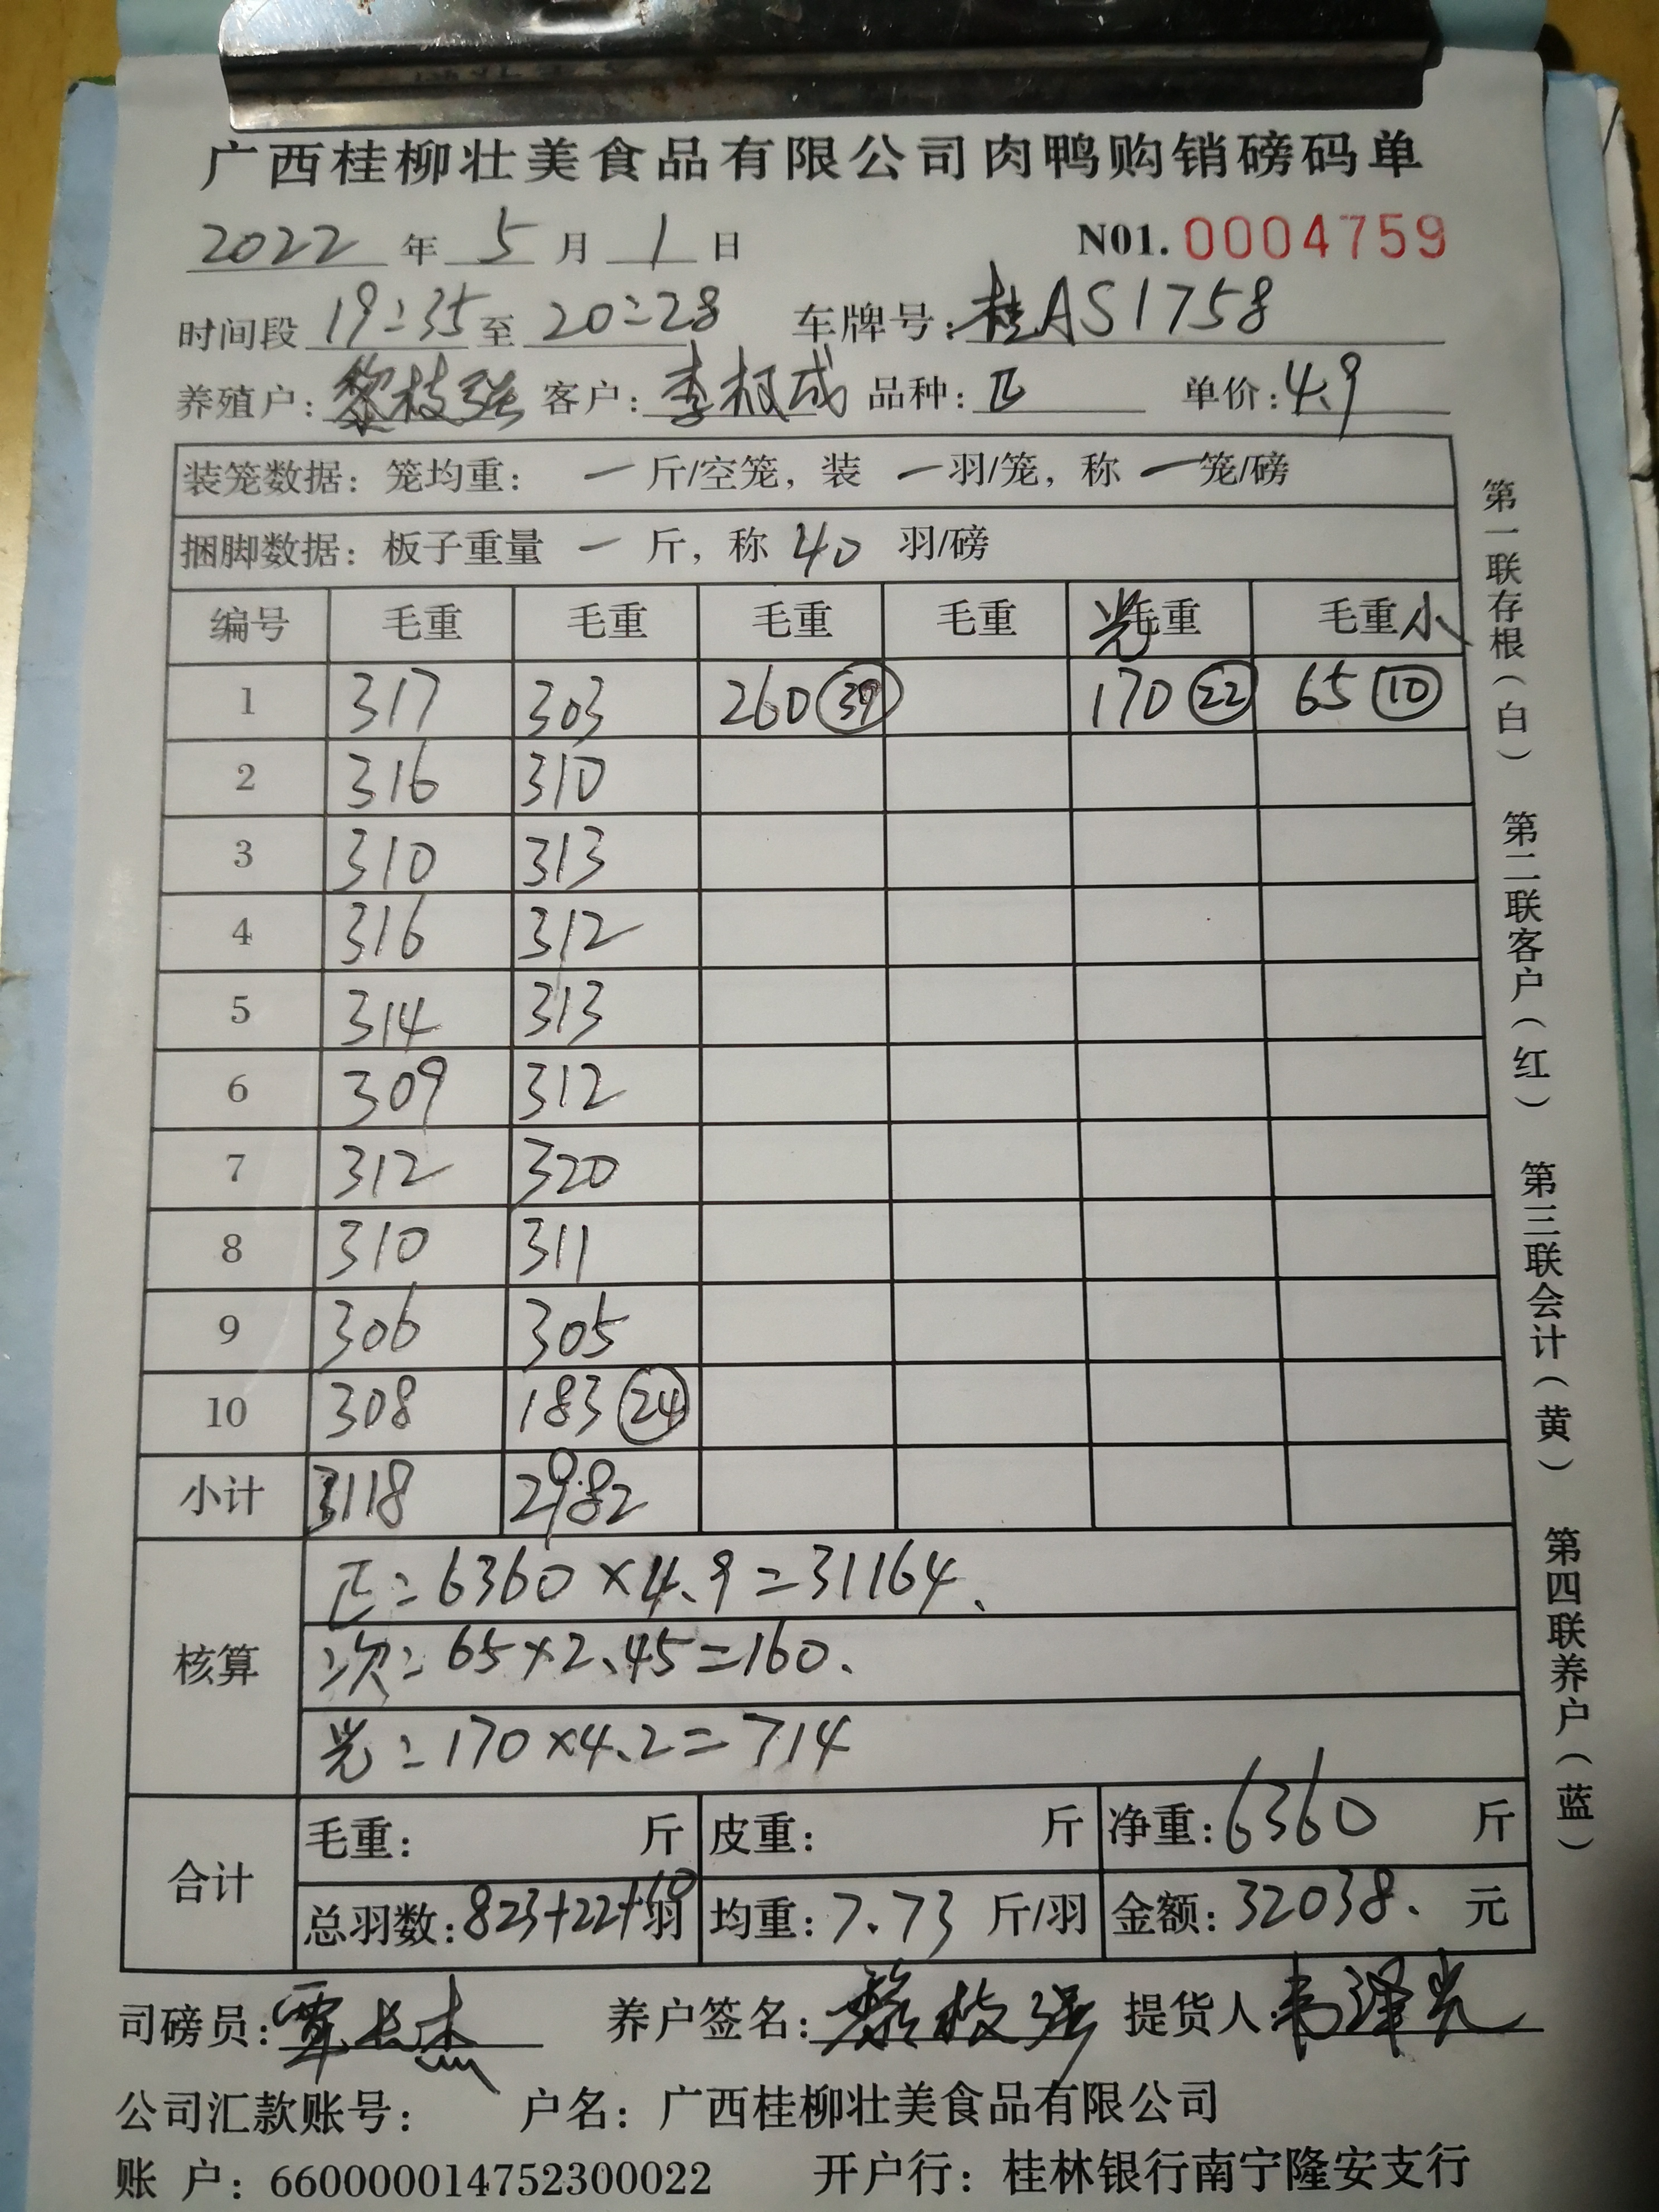 广西桂柳壮美食品有限公司肉鸭购销磅码单
2022 年 5 月 1 日 N01. 0004759
时间段 19:35 至 20:28 车牌号: 桂AS1758
养殖户: 黎枝强 客户: 李权成 品种: 正 单价: 4.9
装笼数据: 笼均重: 一 斤/空笼, 装 一 羽/笼, 称 一 笼/磅
捆脚数据: 板子重量 一 斤, 称 40 羽/磅
编号 毛重 毛重 毛重 毛重 光 毛重 毛重 小
1 317 303 260 39 170 22 65 10
2 316 310
3 310 313
4 316 312
5 314 313
6 309 312
7 312 320
8 310 311
9 306 305
10 308 183 24
小计 3118 2982
核算
正: 6360×4.9=31164.
次: 65×2.45=160.
光: 170×4.2=714
合计
毛重: 斤 皮重: 斤 净重: 6360 斤
总羽数: 823+22+10 羽 均重: 7.73 斤/羽 金额: 32038. 元
司磅员: 覃 杰 养户签名: 黎枝强 提货人: 韦泽光
公司汇款账号: 户名: 广西桂柳壮美食品有限公司
账 户: 660000014752300022 开户行: 桂林银行南宁隆安支行
第一联存根(白) 第二联客户(红) 第三联会计(黄) 第四联养户(蓝)